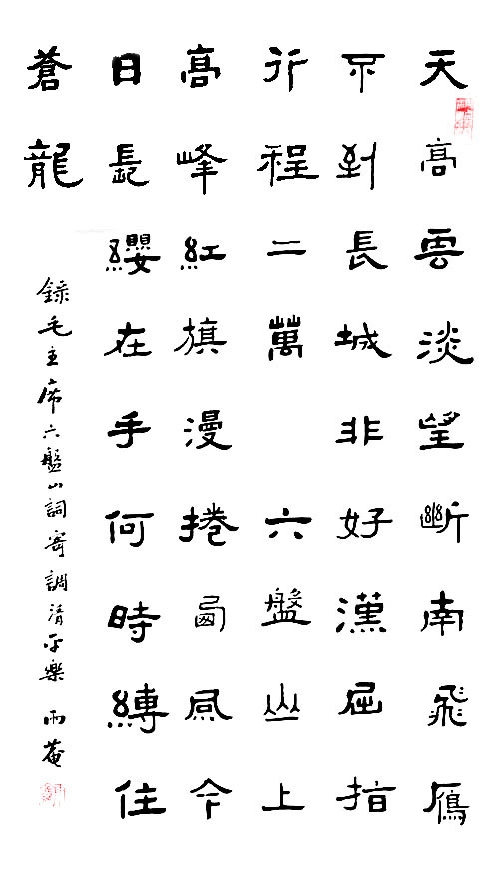 天高雲淡望斷南飛雁
不到長城非好漢屈指
行程二萬 六盤山上
高峰紅旗漫捲西風今
日長纓在手何時縛住
蒼龍
錄毛主席六盤山詞寄調清平樂 雨菴